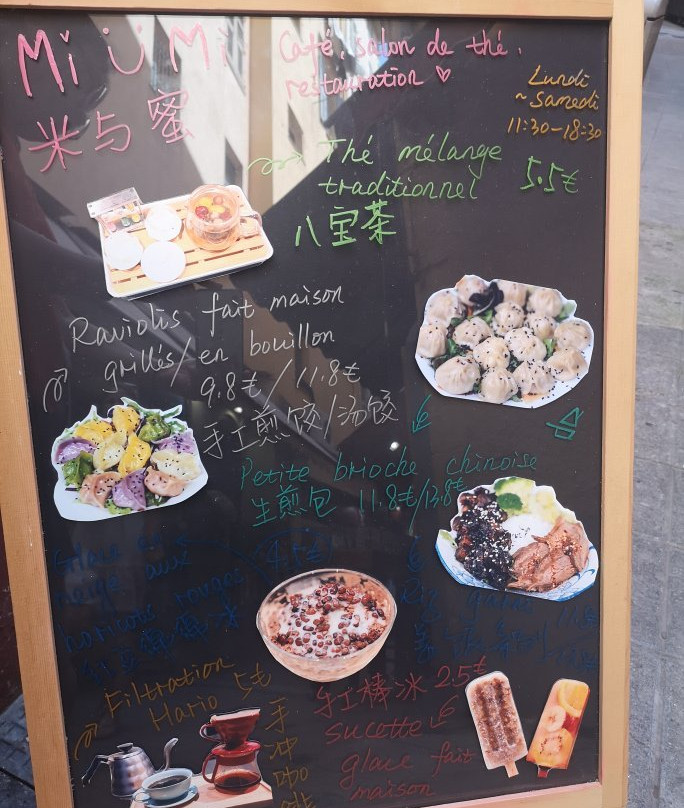 MiüMi
米与蜜
Café, salon de thé,
restauration ♡
Lundi
~Samedi
11:30-18:30
Thé mélange
traditionnel 5.5€
八宝茶
Raviolis fait maison
grillés/en bouillon
9.8€/11.8€
手工煎饺/汤饺
Petite brioche chinoise
生煎包 11.8€/13.8€
Glace en
neige aux
haricots rouges
4.5€
红豆绵绵冰
Filtration
Hario 5€
手冲咖啡
手工棒冰 2.5€
sucette
glace fait
maison